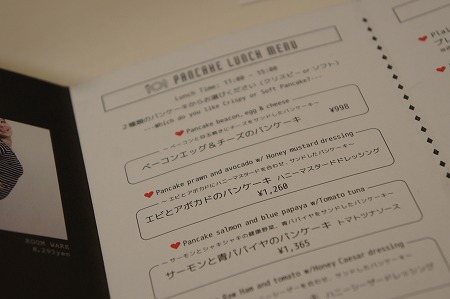 PANCAKE LUNCH MENU
Lunch Time: 11:00 - 15:00
2種類のパンケーキからお選びください(クリスピー or ソフト)
...Which do you like Crispy or Soft Pancake?...
Pancake beacon, egg & cheese
ベーコンエッグ&チーズのパンケーキ ¥998
Pancake prawn and avocado w/ Honey mustard dressing
~ エビとアボカドにハニーマスタードを合わせ、サンドしたパンケーキ ~
エビとアボカドのパンケーキ ハニーマスタードドレッシング
¥1,260
Pancake salmon and blue papaya w/Tomato tuna
サーモンと青パパイヤのパンケーキ トマトツナソース
¥1,365
Raw Ham and tomato w/Honey Caesar dressing
ROOM WARE
8,295yen
Plai
プレ